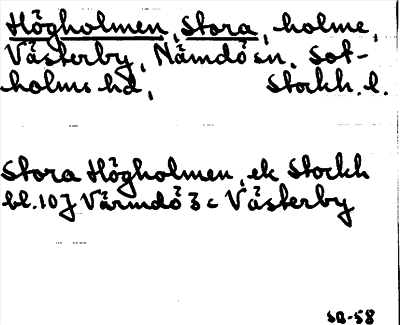 Högholmen, Stora, holme,
Västerby, Nämdö sn, Sot-
holms hd, Stockh. l.
Stora Högholmen, ek Stockh
bl. 10 J Värmdö 3 c Västerby
SB-58